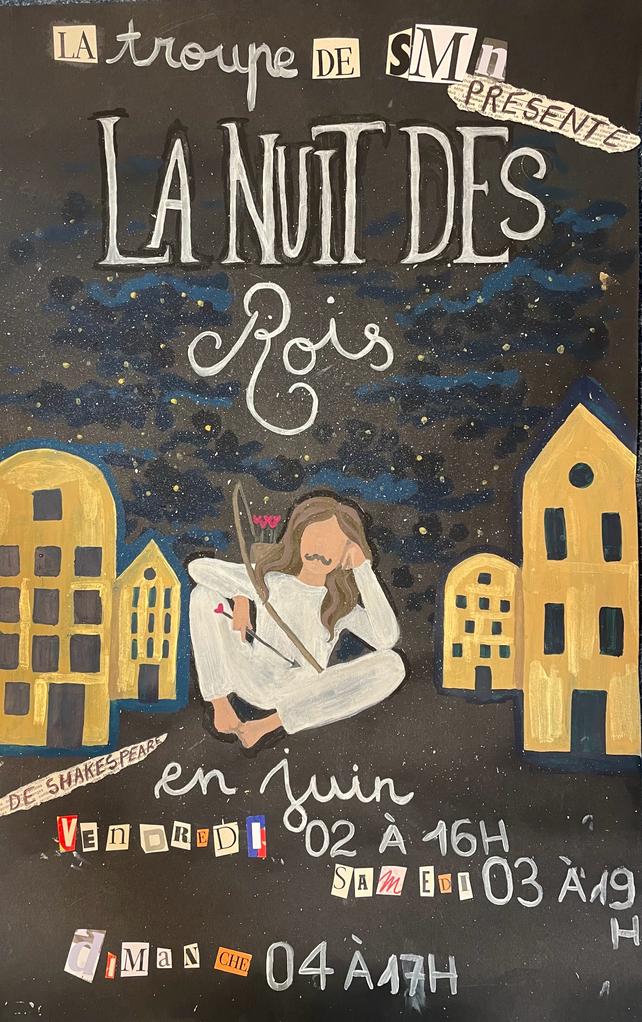 LA troupe DE SMn
PRÉSENTE
LA NUIT DES
Rois
DE SHAKESPEARE
en juin
VEnDREDI 02 À 16H
SAMEDI 03 À 19
H
diMANCHE 04 À 17H